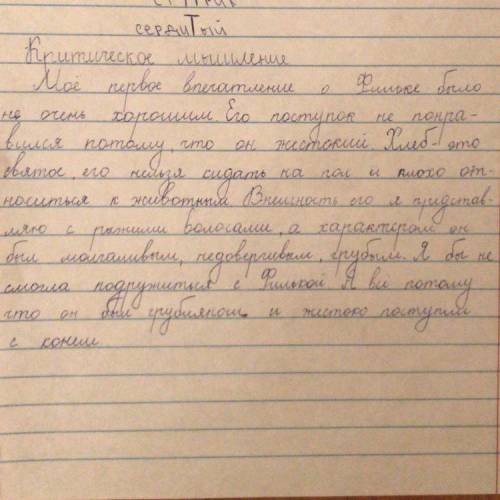 сердиТый
Критическое мышление
Моё первое впечатление о Фильке было
не очень хорошим. Его поступок не понра-
вился потому, что он жестокий. Хлеб-это
святое, его нельзя кидать на пол и плохо от-
носиться к животным. Внешность его я представ-
ляю с рыжими волосами, а характером он
был молчаливым, недоверчивым, грубым. Я бы не
смогла подружиться с Филькой. А всё потому
что он был грубияном и жестоко поступил
с конем.